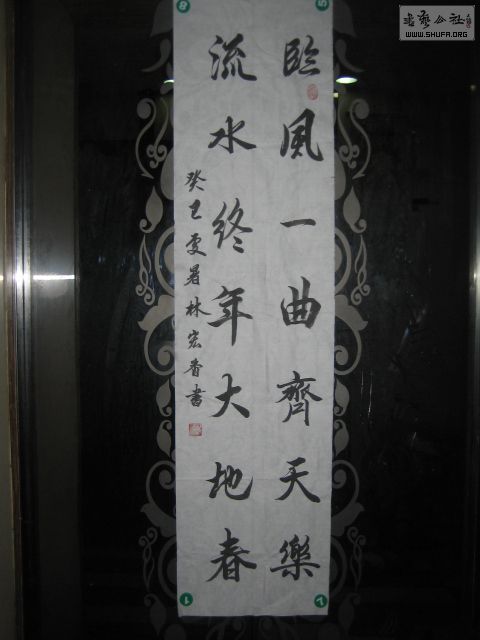 臨風一曲齊天樂
流水終年大地春
癸巳處暑林宏香書
書藝公社
WWW.SHUFA.ORG